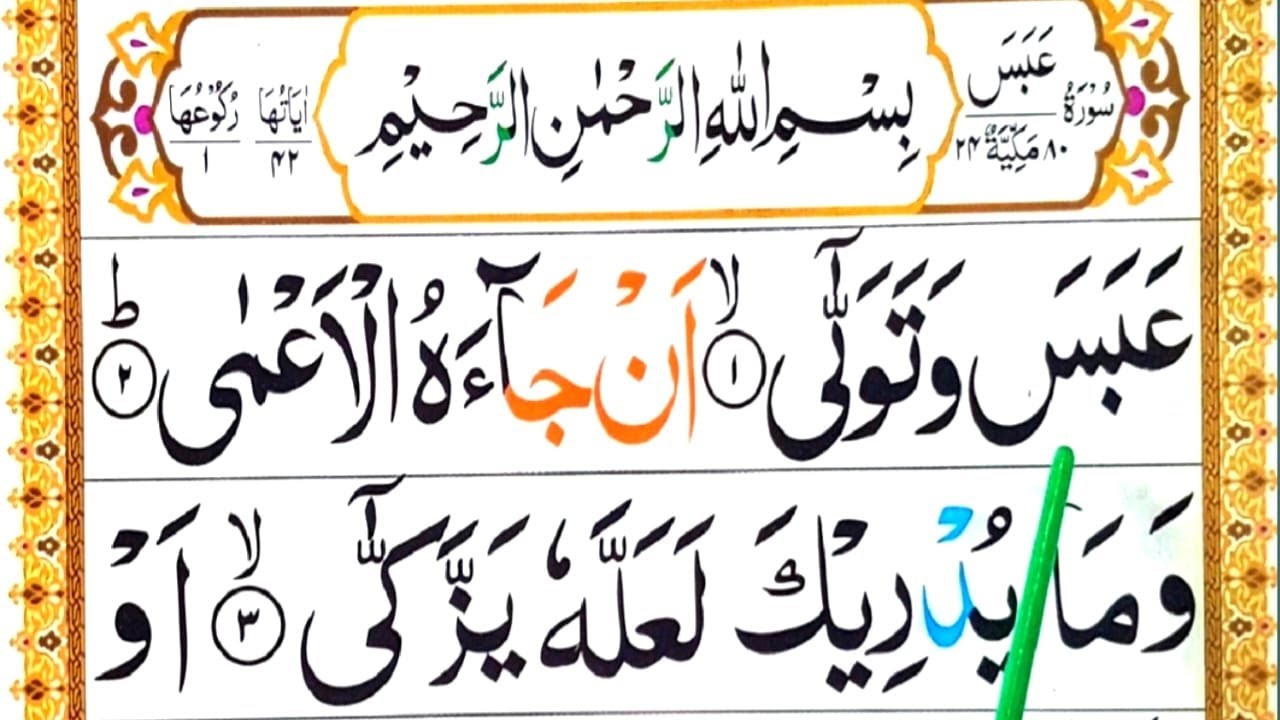 سُوْرَةُ عَبَسَ ٨٠ مَكِّيَّةٌ ٢٤
بِسْمِ اللّٰهِ الرَّحْمٰنِ الرَّحِيْمِ
اٰيَاتُهَا ٤٢ رُكُوْعُهَا ١
عَبَسَ وَتَوَلّٰٓى ۙ ١ اَنْ جَآءَهُ الْاَعْمٰى ؕ ٢
وَمَا يُدْرِيْكَ لَعَلَّهٗ يَزَّكّٰٓى ۙ ٣ اَوْ